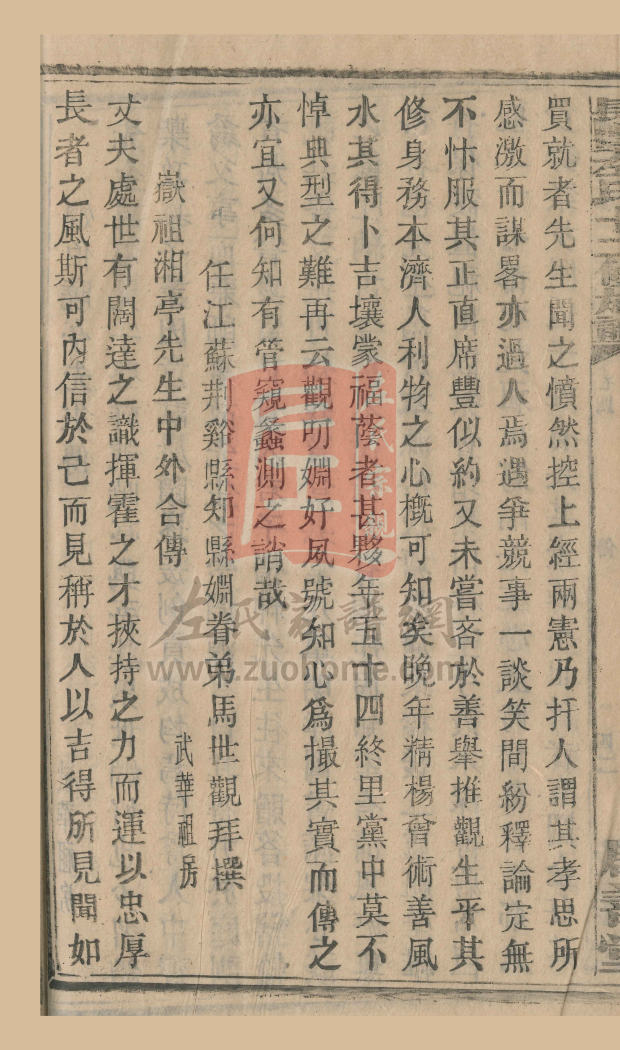 買就者先生聞之憤然控上經兩憲乃扞人謂其孝思所
感激而謀畧亦過人焉遇爭競事一談笑間紛釋論定無
不忭服其正直席豐似約又未嘗吝於善舉推觀生平其
修身務本濟人利物之心概可知矣晚年精楊曾術善風
水其得卜吉壤蒙福蔭者甚夥年五十四終里黨中莫不
悼典型之難再云觀叨姻好夙號知心為撮其實而傳之
亦宜又何知有管窺蠡測之誚哉
任江蘇荆谿縣知縣姻眷弟馬世觀拜撰
嶽祖湘亭先生中外合傳 武華祖房
丈夫處世有闊達之識揮霍之才挾持之力而運以忠厚
長者之風斯可內信於己而見稱於人以吉得所見聞如
左氏族譜網
www.zuohome.com